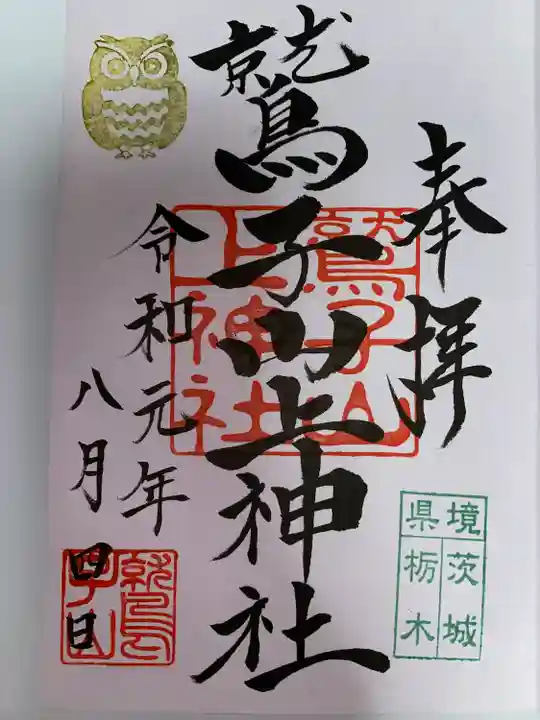 奉拝
鷲子山上神社
鷲子山
上神社
令和元年
八月四日
鷲子山
境
県
茨城
栃木